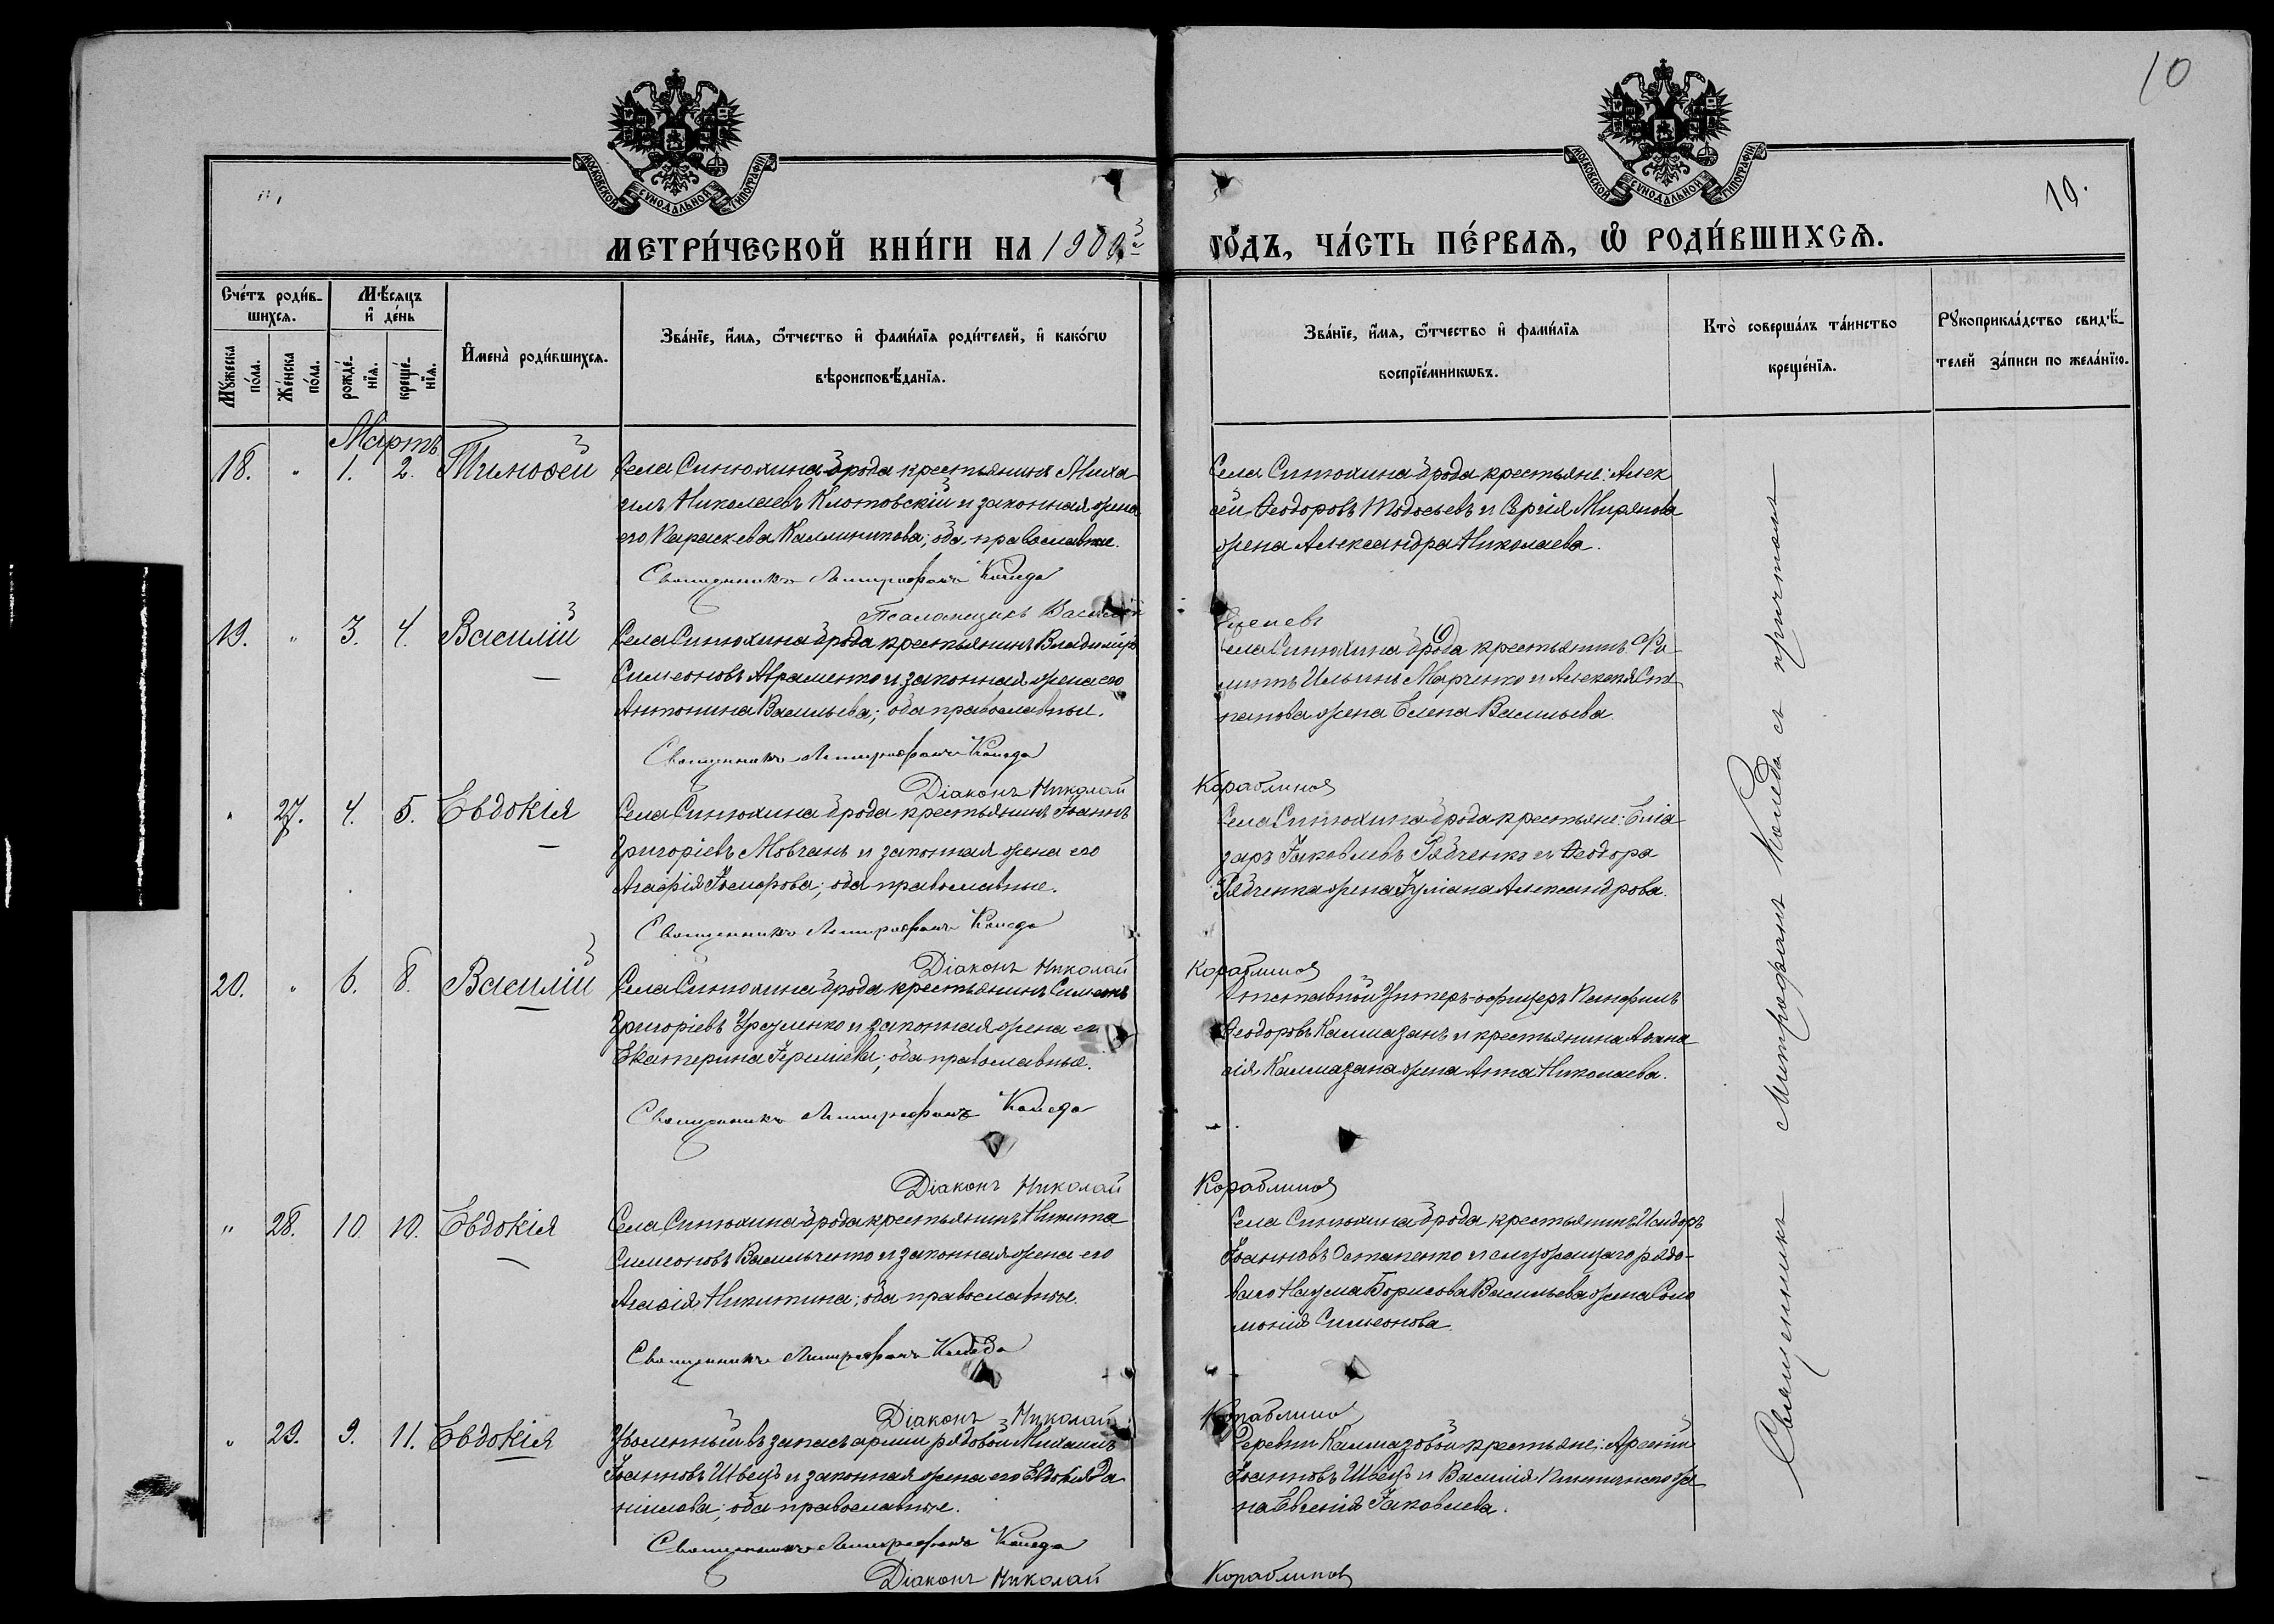 10
МОСКОВСКОЙ СУНОДАЛЬНОЙ ТИПОГРАФІИ
МОСКОВСКОЙ СУНОДАЛЬНОЙ ТИПОГРАФІИ
10.
МЕТРИ́ЧЕСКОЙ КНИ́ГИ НА 1900й
ГО́ДЪ, ЧА́СТЬ ПЕ́РВАѦ, Ѡ҆ РОДИ́ВШИХСѦ.
Сче́тъ роди́в-
шихсѧ.
Мѣ́сѧцъ
и҆ де́нь
Мꙋ́жеска по́ла.
Же́нска по́ла.
рожде́-нїѧ.
креще́-нїѧ.
И҆мена̀ роди́вшихсѧ.
Зва́нїе, и҆́мѧ, ѻ҆́тчество и҆ фами́лїѧ роди́телей, и҆ како́гѡ
вѣроисповѣ́данїѧ.
Зва́нїе, и҆́мѧ, ѻ҆́тчество и҆ фами́лїѧ
воспрїе́мникѡвъ.
Кто̀ соверша́лъ та́инство
креще́нїѧ.
Рꙋкоприкла́дство свидѣ́-
телей за́писи по жела́нїю.
Мартъ
18. " 1. 2. Тимоѳей
Села Синюхина Брода крестьянинъ Миха
илъ Николаевъ Клотовскій и законная жена
его Параскева Каллиникова; оба православные.
Священникъ Митрофанъ Коледа
Псаломщикъ Василій
Села Синюхина Брода крестьяне: Алек
сѣй Ѳеодоровъ Тодосьевъ и Сергія Мирянова
жена Александра Николаева.
19. " 3. 4. Василій
Села Синюхина Брода крестьянинъ Владиміръ
Симеоновъ Авраменко и законная жена его
Антонина Васильева; оба православные.
Священникъ Митрофанъ Коледа
Діаконъ Николай
Кораблиновъ
Села Синюхина Брода крестьянинъ Фи
липпъ Ильинъ Марченко и Алексѣя Сте
панова жена Елена Васильева.
" 27. 4. 5. Евдокія
Села Синюхина Брода крестьянинъ Іоаннъ
Григоріевъ Мовчанъ и законная жена его
Агафія Іосифова; оба православные.
Священникъ Митрофанъ Коледа
Діаконъ Николай
Кораблиновъ
Села Синюхина Брода крестьяне: Елеа
заръ Іаковлевъ Рябченко и Ѳеодора
Рябченка жена Іуліана Александрова.
20. " 6. 8. Василій
Села Синюхина Брода крестьянинъ Симеонъ
Григоріевъ Урсуленко и законная жена его
Екатерина Іереміева; оба православные.
Священникъ Митрофанъ Коледа
Діаконъ Николай
Кораблиновъ
Отставной Унтеръ-офицеръ Панфилъ
Ѳеодоровъ Калмазанъ и крестьянина Аѳана
сія Калмазана жена Анна Николаева.
" 28. 10. 10. Евдокія
Села Синюхина Брода крестьянинъ Никита
Симеоновъ Васильченко и законная жена его
Агаѳія Никитина; оба православные.
Священникъ Митрофанъ Коледа
Діаконъ Николай
Кораблиновъ
Села Синюхина Брода крестьянинъ Исидоръ
Іоанновъ Остапенко и служащаго рядо-
ваго Наума Борисова Васильева жена Соло
монія Симеонова.
" 29. 9. 11. Евдокія
Уволенный въ запасъ арміи рядовой Михаилъ
Іоанновъ Швецъ и законная жена его Евдокія Да
ніилова; оба православные.
Священникъ Митрофанъ Коледа
Діаконъ Николай
Кораблиновъ
Деревни Калмазовой крестьяне: Арсеній
Іоанновъ Швецъ и Василія же
на Евгенія Іаковлева.
Священникъ Митрофанъ Коледа съ причтомъ